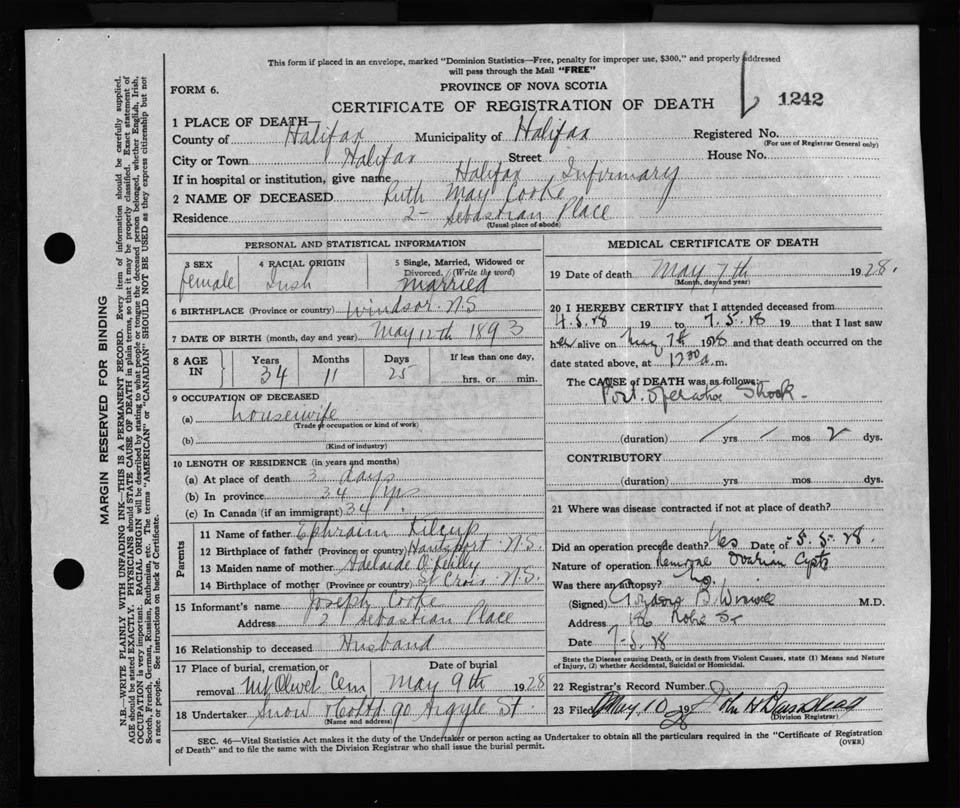 This form if placed in an envelope, marked "Dominion Statistics—Free, penalty for improper use, $300," and properly addressed
will pass through the Mail "FREE"
FORM 6.
PROVINCE OF NOVA SCOTIA
CERTIFICATE OF REGISTRATION OF DEATH
1242
1 PLACE OF DEATH
County of Halifax Municipality of Halifax Registered No.
(For use of Registrar General only)
City or Town Halifax Street House No.
If in hospital or institution, give name Halifax Infirmary
2 NAME OF DECEASED Ruth May Cooke
Residence 2- Sebastian Place
(Usual place of abode)
PERSONAL AND STATISTICAL INFORMATION
3 SEX 4 RACIAL ORIGIN 5 Single, Married, Widowed or
Divorced. (Write the word)
female Irish married
6 BIRTHPLACE (Province or country) Windsor. N.S
7 DATE OF BIRTH (month, day and year) May 12th 1893
8 AGE IN Years Months Days If less than one day,
34 11 25 hrs. or min.
9 OCCUPATION OF DECEASED
(a) housewife
(Trade or occupation or kind of work)
(b)
(Kind of industry)
10 LENGTH OF RESIDENCE (in years and months)
(a) At place of death 3 days
(b) In province 34 yrs
(c) In Canada (if an immigrant) 34
Parents
11 Name of father Ephraim Kilcup
12 Birthplace of father (Province or country) Hantsport. N.S.
13 Maiden name of mother Adelaide O.Kelly
14 Birthplace of mother (Province or country) St Croix. N.S.
15 Informant's name Joseph Cooke
Address 2 Sebastian Place
16 Relationship to deceased Husband
17 Place of burial, cremation or Date of burial
removal Mt Olivet Cem May 9th 1928
18 Undertaker Snow & Co Ltd 90 Argyle St
(Name and address)
MEDICAL CERTIFICATE OF DEATH
19 Date of death May 7th 1928.
(Month, day and year)
20 I HEREBY CERTIFY that I attended deceased from
4.5.28 19 to 7.5.28 19 that I last saw
her alive on May 7th 1928 and that death occurred on the
date stated above, at 12 30 a.m.
The CAUSE of DEATH was as follows:
Post. operative Shock -
(duration) / yrs / mos 2 dys.
CONTRIBUTORY
(duration) yrs. mos. dys.
21 Where was disease contracted if not at place of death?
Did an operation precede death? Yes Date of 5.5.28.
Nature of operation Removal Ovarian Cysts
Was there an autopsy? No.
(Signed) M.D.
Address Robie St
Date 7-5.28
State the Disease causing Death, or in death from Violent Causes, state (1) Means and Nature
of Injury, (2) whether Accidental, Suicidal or Homicidal.
22 Registrar's Record Number
23 Filed May 10 1928
(Division Registrar)
SEC. 46—Vital Statistics Act makes it the duty of the Undertaker or person acting as Undertaker to obtain all the particulars required in the "Certificate of Registration
of Death" and to file the same with the Division Registrar who shall issue the burial permit.
(OVER)
MARGIN RESERVED FOR BINDING
N.B.—WRITE PLAINLY WITH UNFADING INK—THIS IS A PERMANENT RECORD. Every item of information should be carefully supplied.
AGE should be stated EXACTLY. PHYSICIANS should STATE CAUSE OF DEATH in plain terms, so that it may be properly classified. Exact statement of
OCCUPATION is very important. RACIAL ORIGIN will be described by stating to what people or tongue the deceased person belonged, whether English, Irish,
Scotch, French, German, Russian, Ruthenian, etc. The terms "AMERICAN" or "CANADIAN" SHOULD NOT BE USED as they express citizenship but not
a race or people. See instructions on back of Certificate.